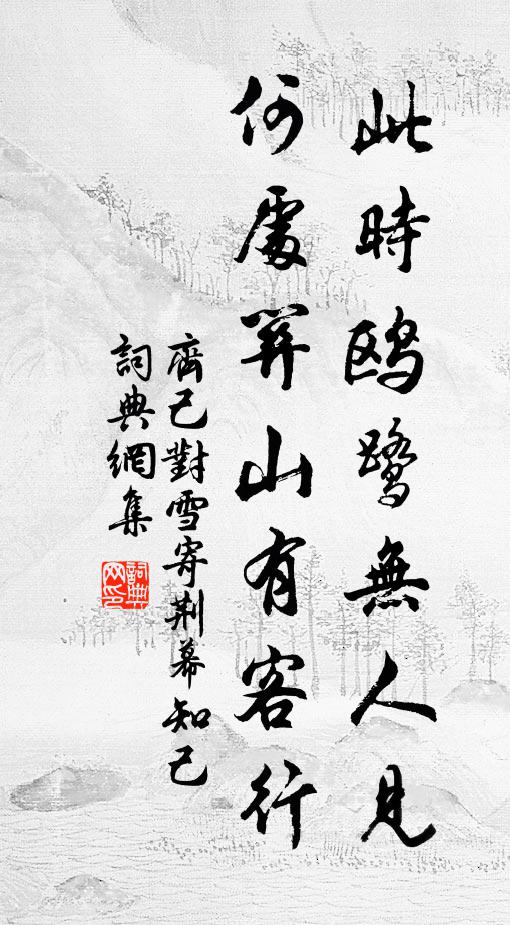 此時鷗鷺無人見
何處關山有客行
齊己對雪寄荆幕知己
詞典網集
詞典网印